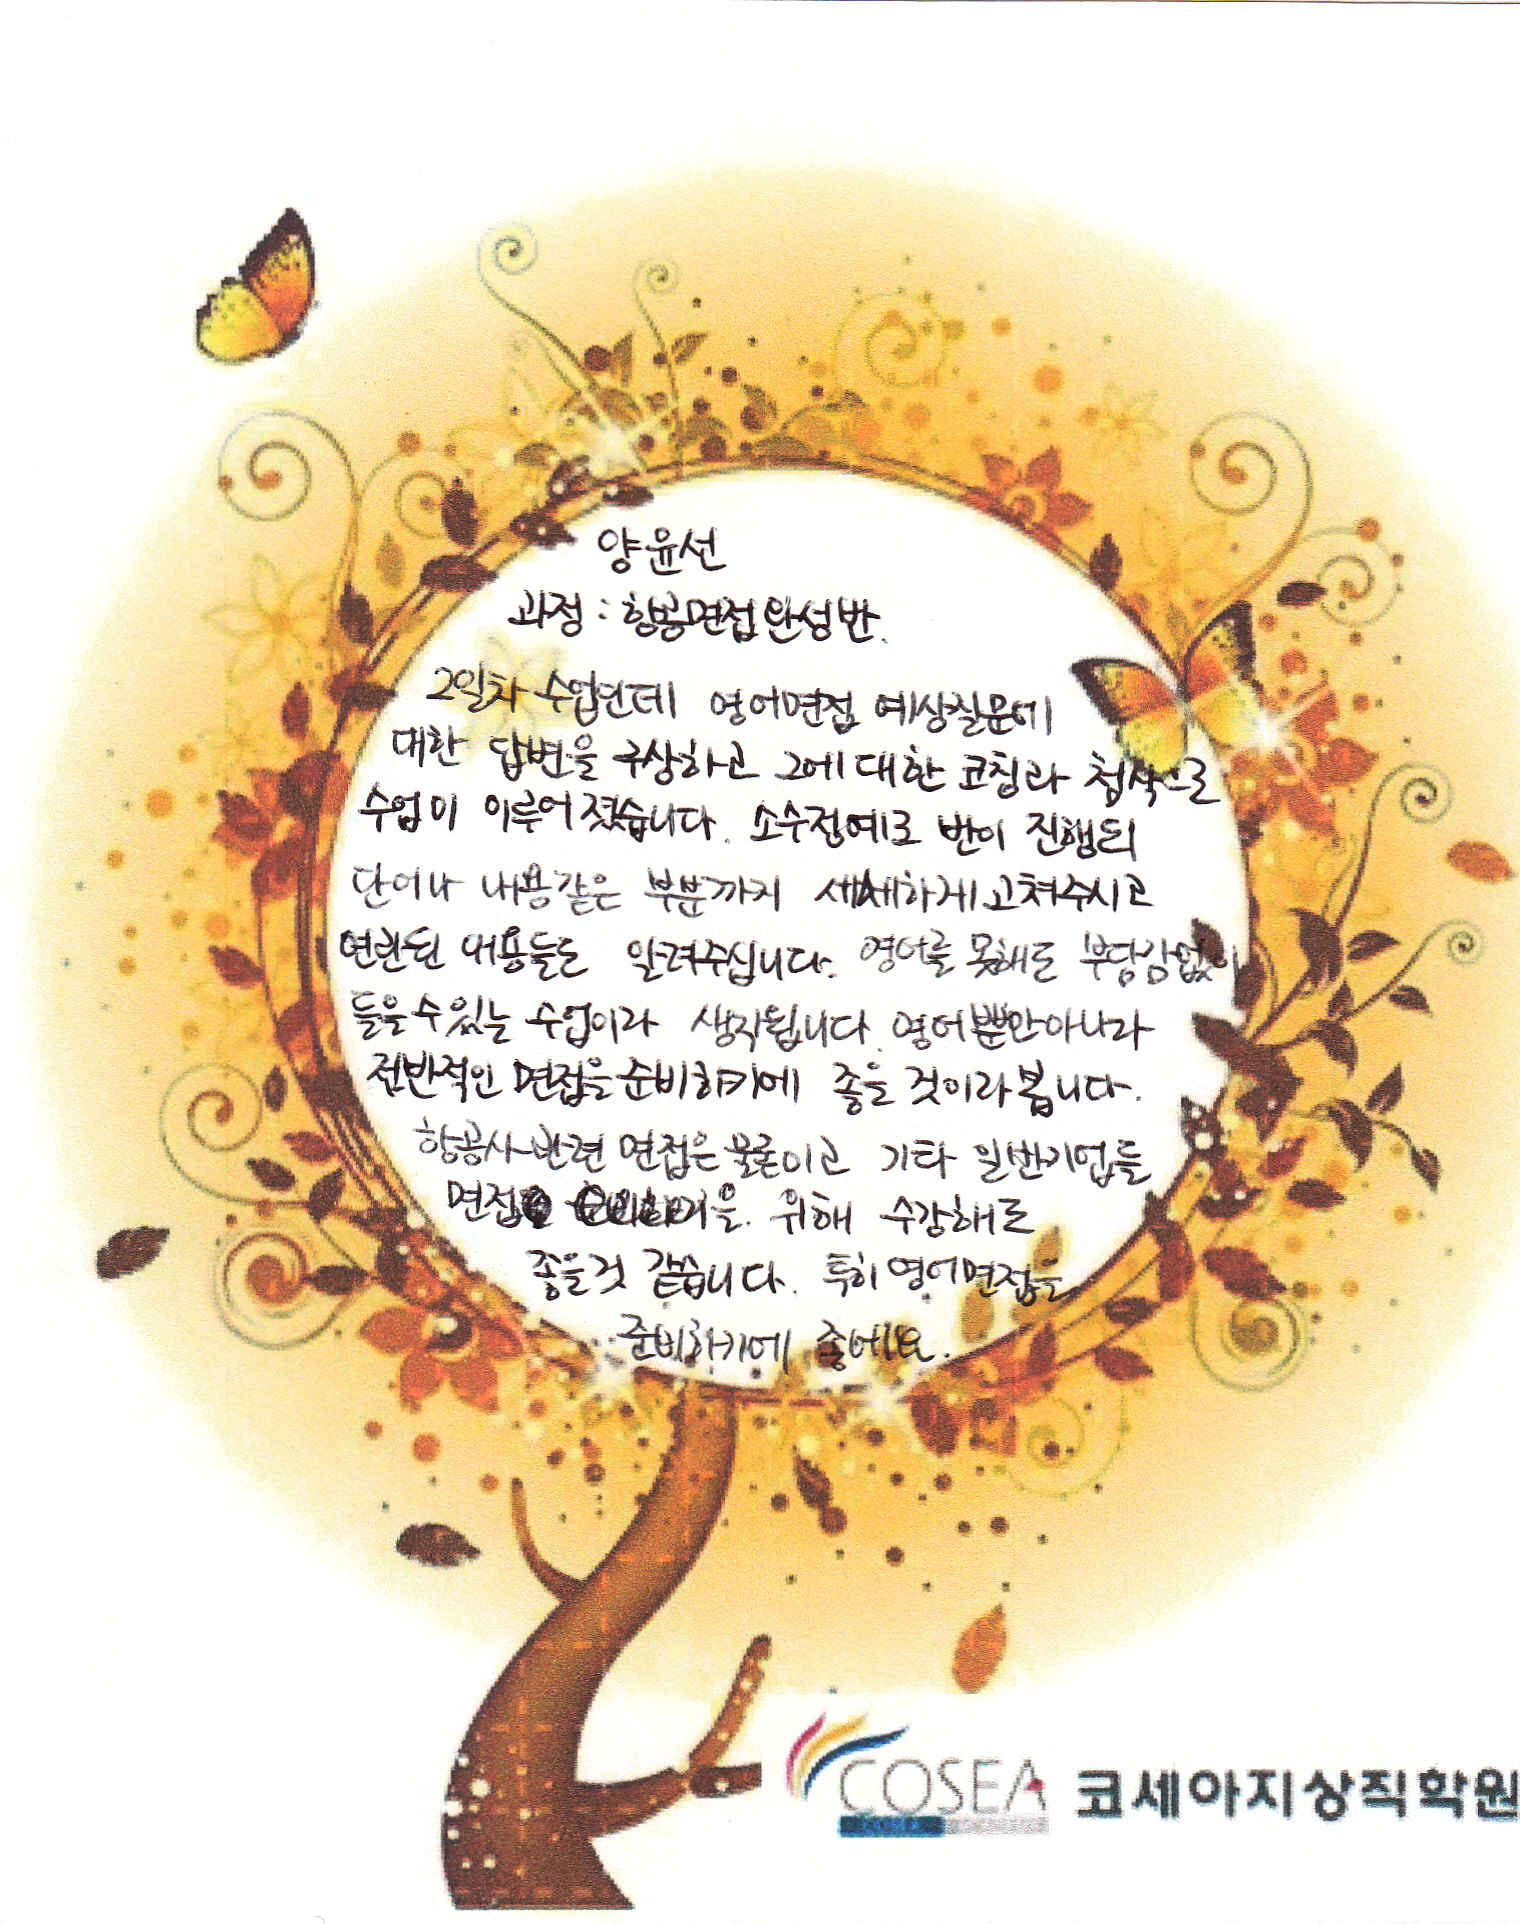 양윤선
과정 : 항공면접완성반.
2일차 수업인데 영어면접 예상질문에
대한 답변을 구상하고 그에 대한 코칭과 첨삭으로
수업이 이루어졌습니다. 소수정예로 반이 진행되
단어나 내용같은 부분까지 세세하게 고쳐주시고
연관된 내용들도 알려주십니다. 영어를 못해도 부담감없이
들을 수 있는 수업이라 생각됩니다. 영어뿐만아니라
전반적인 면접을 준비하기에 좋을 것이라 봅니다.
항공사 관련 면접은 물론이고 기타 일반기업들
면접을. 위해 수강해도
좋을것 같습니다. 특히 영어면접을
준비하기에 좋아요.
COSEA 코세아지상직학원